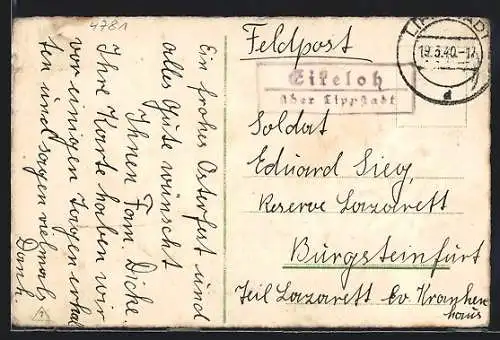 4781
Ein frohes Osterfest und
alles Gute wünscht
Ihnen Fam. Dicke.
Ihre Karte haben wir
vor einigen Tagen erhal
ten und sagen vielmals
Dank.
Feldpost
LIPPSTADT
19.3.40.-17
d
Eikeloh
über Lippstadt
Soldat
Eduard Sieg,
Reserve Lazarett
Burgsteinfurt
Teil Lazarett Ev Kranken
haus